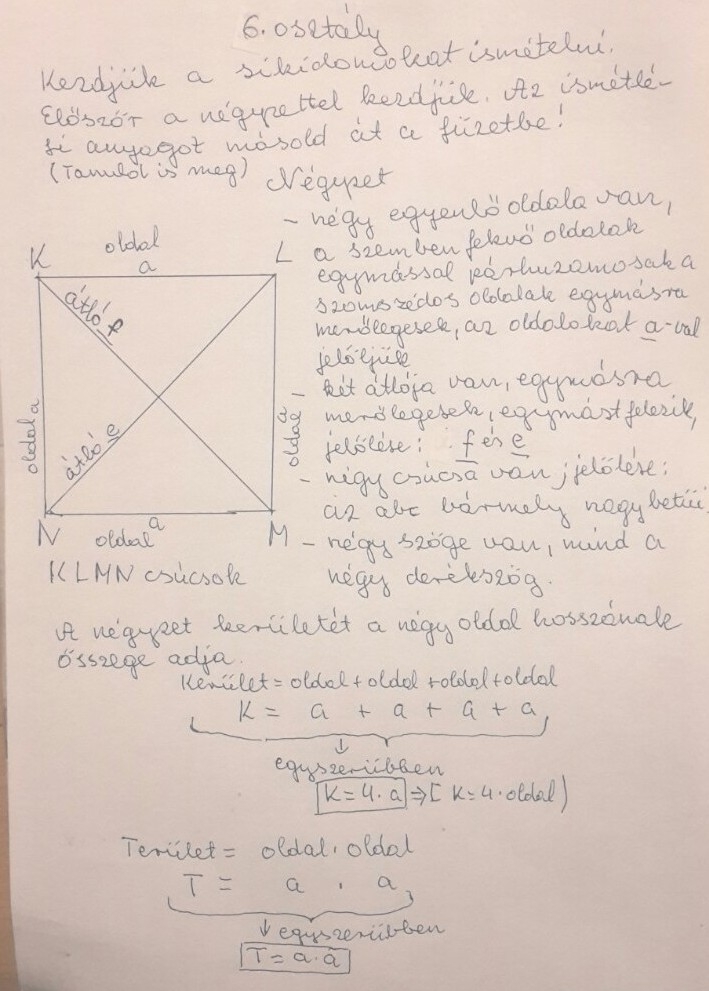 6. osztály
Kezdjük a síkidomokat ismételni.
Először a négyzettel kezdjük. Az ismétlé-
si anyagot másold át a füzetbe!
(Tanuld is meg)
Négyzet
- négy egyenlő oldala van,
a szemben fekvő oldalak
egymással párhuzamosak a
szomszédos oldalak egymásra
merőlegesek, az oldalakat a-val
jelöljük
- két átlója van, egymásra
merőlegesek, egymást felezik,
jelölése: f és e
- négy csúcsa van; jelölése:
az abc bármely nagybetűi.
- négy szöge van, mind a
négy derékszög.
oldal
a
K
L
átló f
átló e
oldal a
oldal a
N
M
oldal a
KLMN csúcsok
A négyzet kerületét a négy oldal hosszának
összege adja.
Kerület = oldal + oldal + oldal + oldal
K = a + a + a + a
↓
egyszerűbben
K = 4 · a ⇒ [K = 4 · oldal)
Terület = oldal · oldal
T = a · a
↓ egyszerűbben
T = a · a